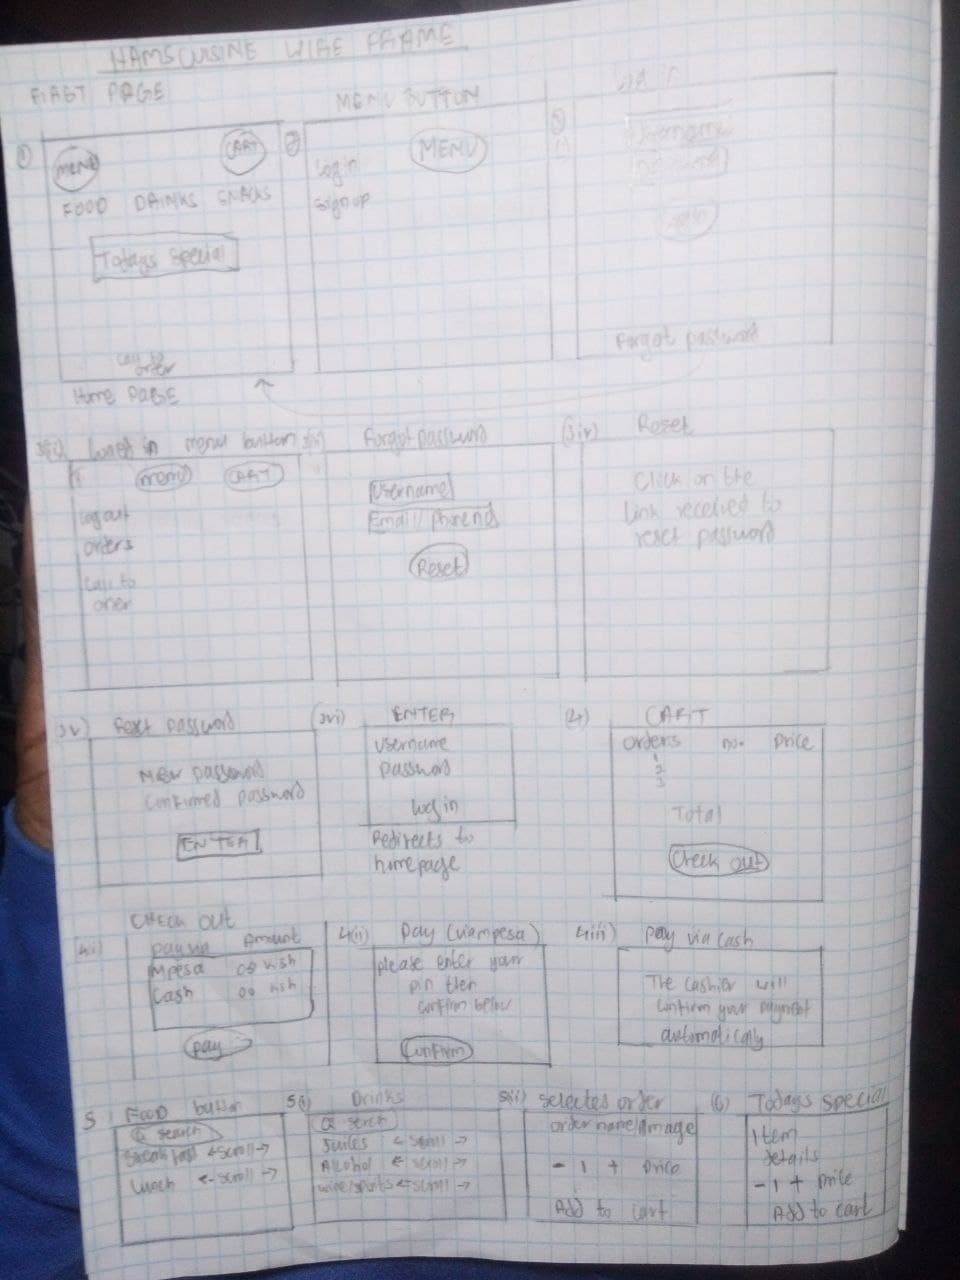 HAMSCUISINE WIRE FRAME
FIRST PAGE
MENU BUTTON
1
MENU
CART
FOOD DRINKS SNACKS
Todays Special
call to
order
Home PAGE
2
MENU
Log in
Sign up
Log in
3
Username
password
Forgot password
menu button
menu
CART
Log out
orders
Call to
Forgot password
Username
Email/
Reset
3iv)
Reset
Click on the
Link received to
reset password
3v) Reset password
New password
Confirmed password
ENTER
3vi) ENTER
Username
password
Log in
Redirects to
homepage
4) CART
orders no. Price
1
2
3
Total
Check out
4i)
CHECK OUT
pay via Amount
Mpesa 00 ksh
Cash 00 ksh
pay
4(ii) Pay (via mpesa)
please enter your
pin then
confirm below
Confirm
4iii) pay via cash
The cashier will
confirm your payment
automatically
5 Food button
Q search
Breakfast <-scroll->
Lunch <-scroll->
5(i) Drinks
Q serch
Juices <-scroll->
Alcohol <-scroll->
<-scroll->
5(ii) selected order
order name/Image
- 1 + price
Add to cart
(6) Todays special
Item
details
- 1 + price
Add to cart